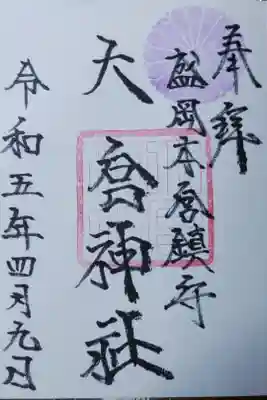 奉拝
盛岡本宮鎮守
大宮神社
令和五年四月九日